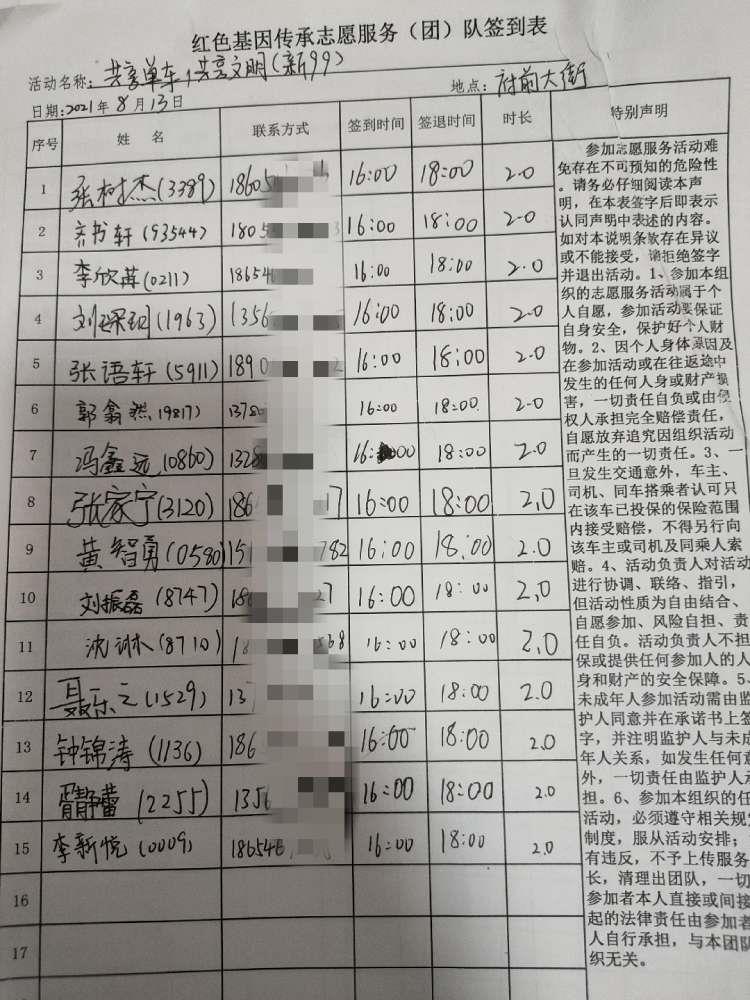 红色基因传承志愿服务（团）队签到表
活动名称：共享单车，共享文明(新99)
日期:2021年8月13日 地点：府前大街
序号 姓 名 联系方式 签到时间 签退时间 时长 特别声明
1 张树杰(3389) 18605 16:00 18:00 2.0
2 齐书轩(93544) 1805 3 16:00 18:00 2.0
3 李欣苒(0211) 18654 16:00 18:00 2.0
4 刘琛羽(1963) 1356 16:00 18:00 2.0
5 张语轩(5911) 1890 2 16:00 18:00 2.0
6 郭翕然(9817) 13780 16:00 18:00 2.0
7 冯鑫远(0860) 1328 16:00 18:00 2.0
8 张家宁(3120) 186 17 16:00 18:00 2.0
9 黄智勇(0580) 151 782 16:00 18:00 2.0
10 刘振磊(8747) 186 27 16:00 18:00 2.0
11 沈琳(8710) 18 568 16:00 18:00 2.0
12 聂乐之(1529) 137 16:00 18:00 2.0
13 钟锦涛(1136) 186 16:00 18:00 2.0
14 胥静蕾(2255) 1356 16:00 18:00 2.0
15 李新悦(0009) 186546 16:00 18:00 2.0
16
17
参加志愿服务活动难
免存在不可预知的危险性
。请务必仔细阅读本声
明，在本表签字后即表示
认同声明中表述的内容。
如对本说明条款存在异议
或不能接受，请拒绝签字
并退出活动。1、参加本组
织的志愿服务活动属于个
人自愿，参加活动要保证
自身安全，保护好个人财
物。2、因个人身体原因及
在参加活动或在往返途中
发生的任何人身或财产损
害，一切责任自负或由侵
权人承担完全赔偿责任，
自愿放弃追究因组织活动
而产生的一切责任。3、一
旦发生交通意外，车主、
司机、同车搭乘者认可只
在该车已投保的保险范围
内接受赔偿，不得另行向
该车主或司机及同乘人索
赔。4、活动负责人对活动
进行协调、联络、指引，
但活动性质为自由结合、
自愿参加、风险自担、责
任自负。活动负责人不担
保或提供任何参加人的人
身和财产的安全保障。5、
未成年人参加活动需由监
护人同意并在承诺书上签
字，并注明监护人与未成
年人关系，如发生任何意
外，一切责任由监护人承
担。6、参加本组织的任
活动，必须遵守相关规定
制度，服从活动安排；
有违反，不予上传服务
长，清理出团队，一切
参加者本人直接或间接
起的法律责任由参加者
人自行承担，与本团队
织无关。